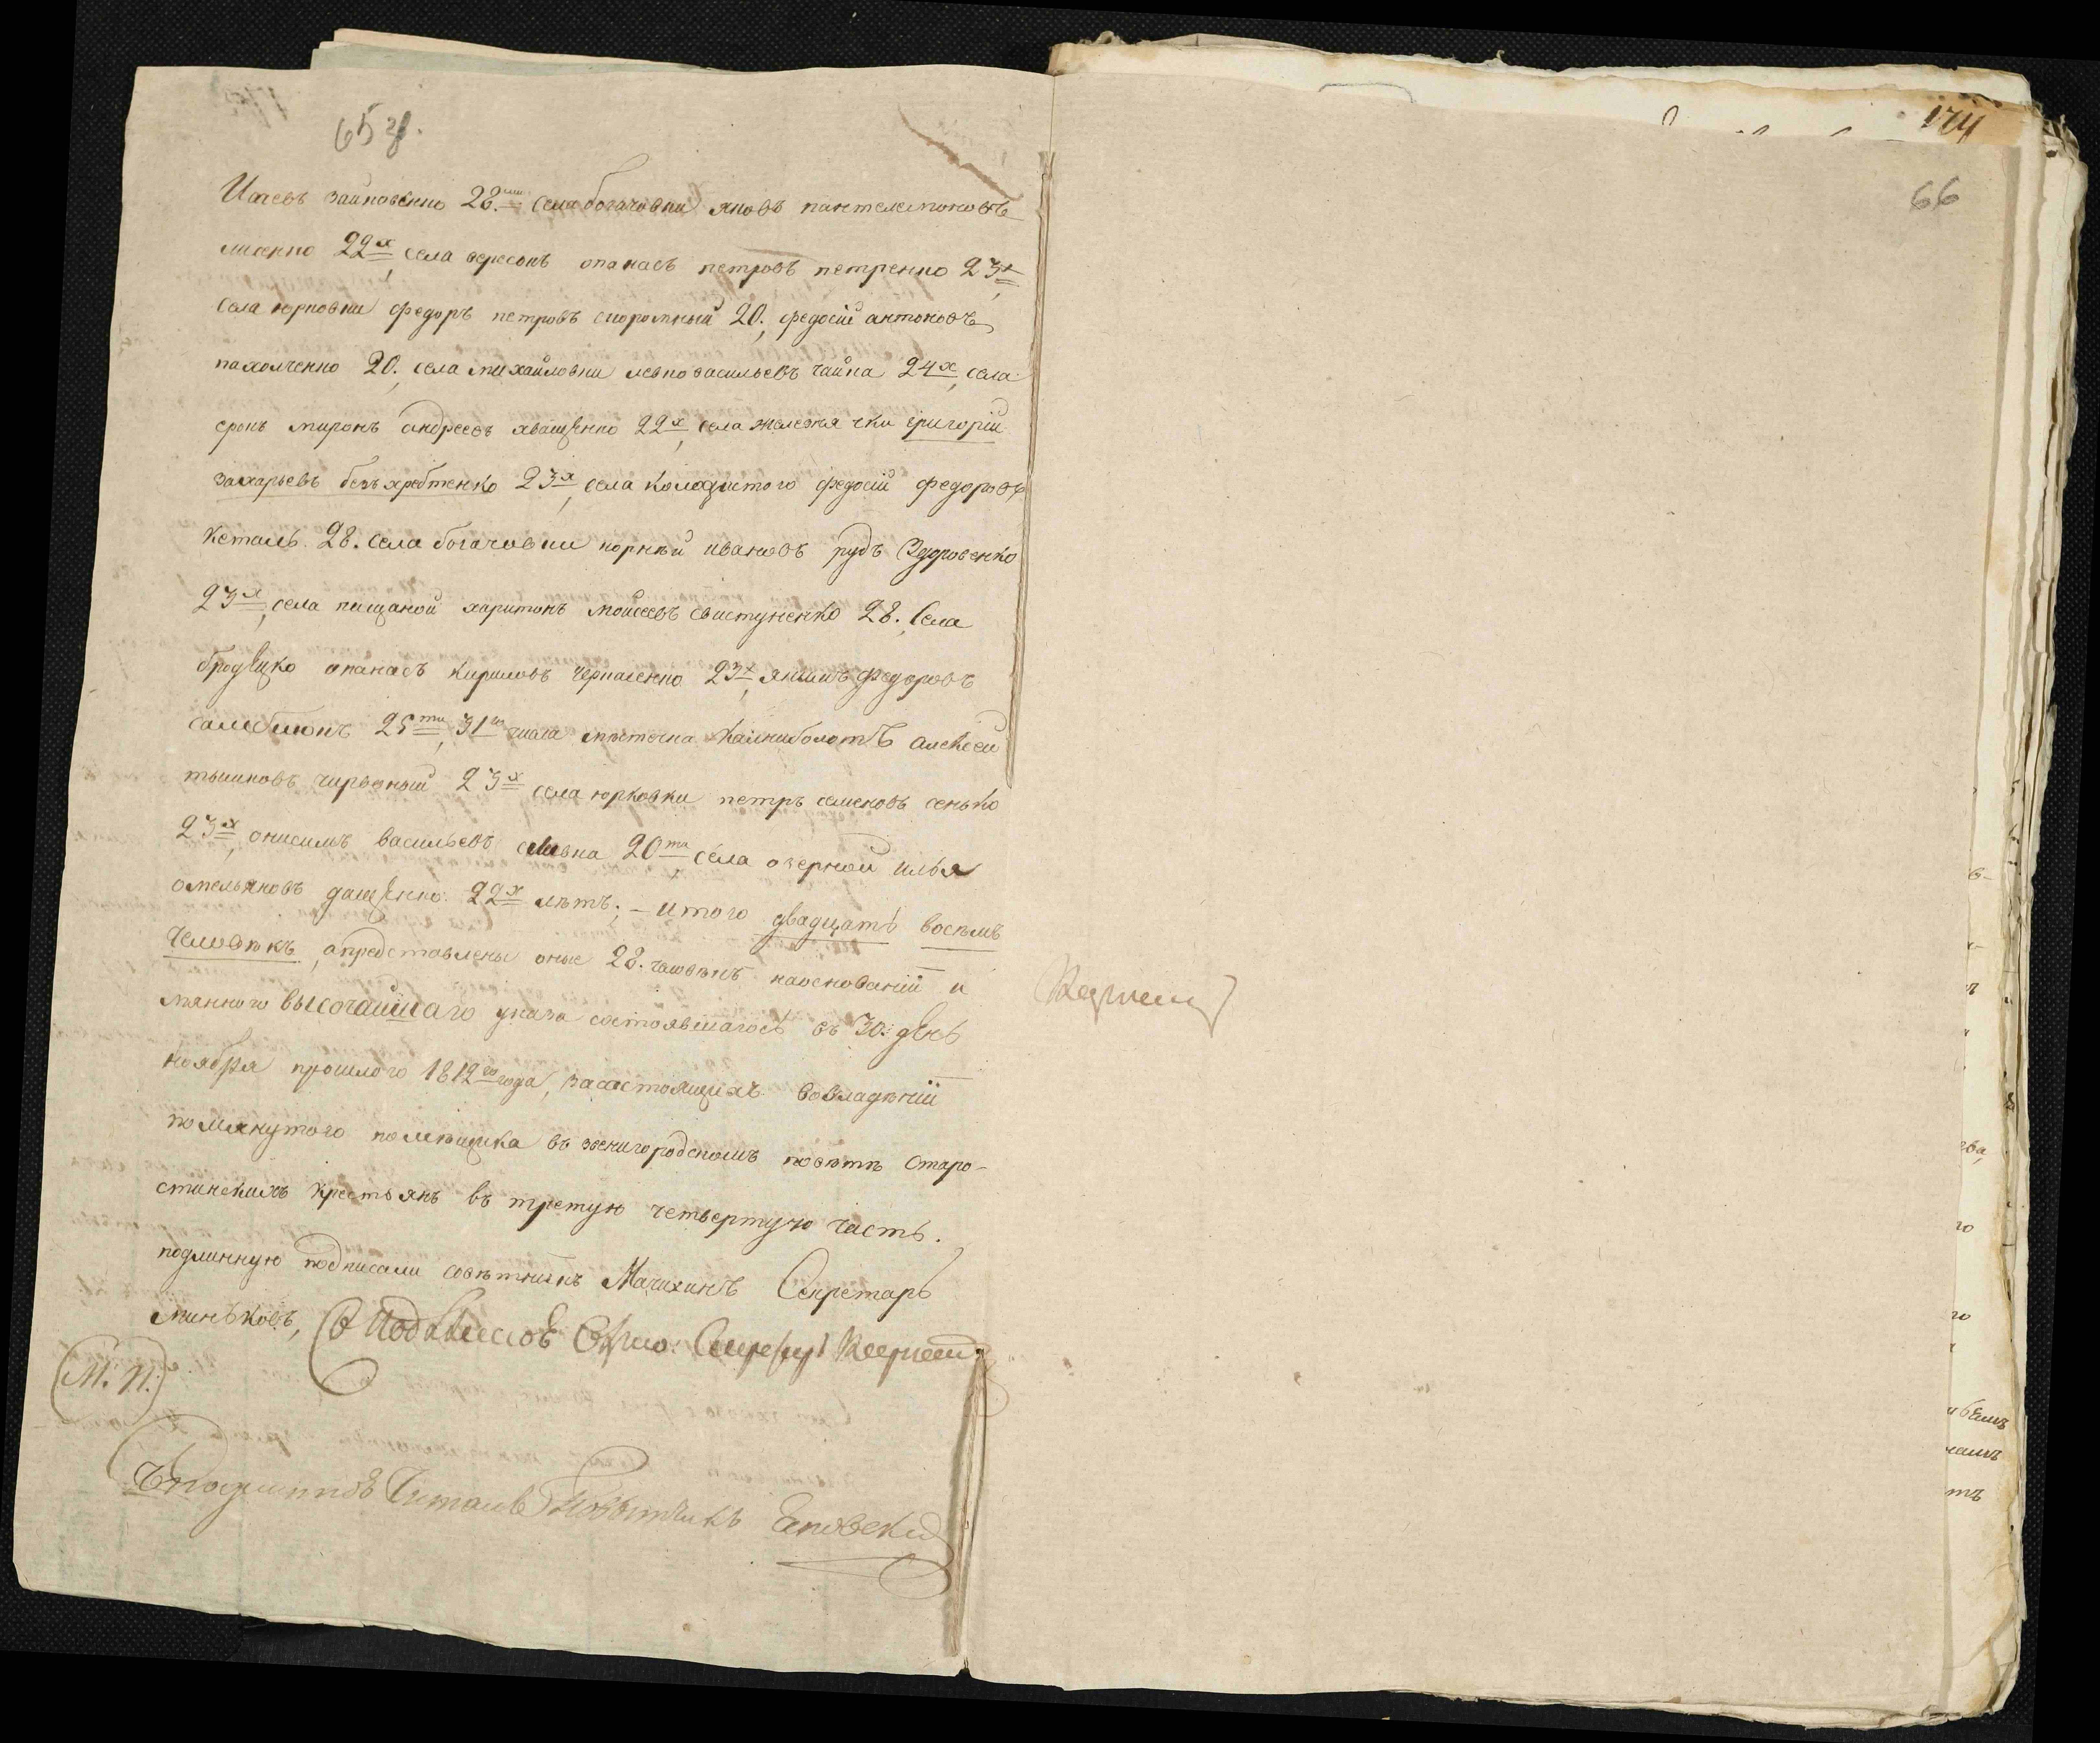 65 з.
Исаевъ заиковенко 26.ти села богачовки яковъ пантелемоновъ
лисенко 22х, села вересокъ опанасъ петровъ петренко 23х,
села юрковки федоръ петровъ скоромный 20., федосий антоновъ
пахолченко 20., села михайловки левко васильевъ чайка 24х, села
ерокъ миронъ андреевъ хващенко 22х, села железнячки григорий
захарьевъ безъхребтенко 23х, села колодистого федосий федоровъ
кеталь. 28. села богачовки корнѣй ивановъ рудъ Здоровенко
23х, села пищаной харитонъ моисеевъ свистуненко 28., Села
бродецко опанасъ кириловъ черпаленко 23х, якимъ федоровъ
25ти, 31го числа мѣстечка калниболотъ алексѣй
тышковъ червоный 23х села юрковки петръ семеновъ сенько
23х, онисимъ васильевъ сливка 20ти, села озерной илья
омельяновъ дащенко 22х лѣтъ; – итого двадцать восѣмъ
человѣкъ, а представлены оные 28. человѣкъ на основании и
мянного высочайшаго указа состоявшагось въ 30: день
ноября прошлого 1812го года, за состоящихъ во владѣнии
помянутого помѣщика въ звенигородскомъ повѣтѣ старо-
стинскихъ крестьянъ въ третую четвертую часть.
подлинную подписали совѣтникъ Мачихинъ Секретарь
миньковъ,
М. П.
Читалъ Повытчикъ
174
66